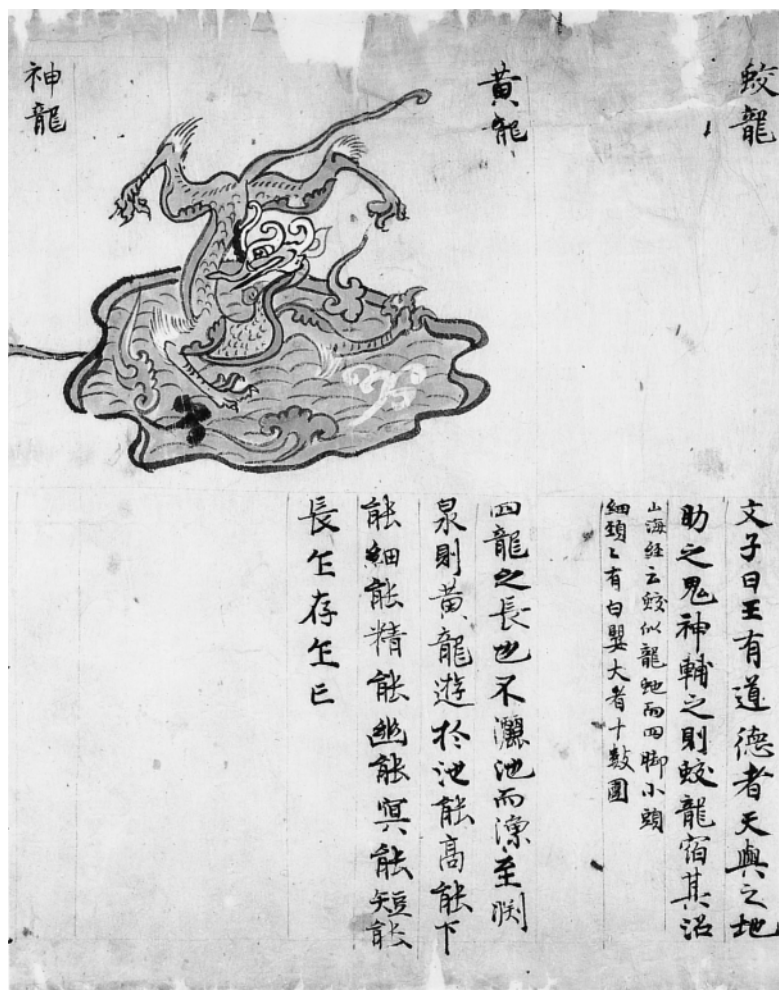 蛟龍
文子曰王有道德者天與之地
助之鬼神輔之則蛟龍宿其沼
山海経云蛟似龍虵而四脚小頭
細頸〻有白嬰大者十數圍
黄龍
四龍之長也不漉池而漁至渕
泉則黄龍遊於池能高能下
能細能精能幽能冥能短能
長乍存乍亡
神龍